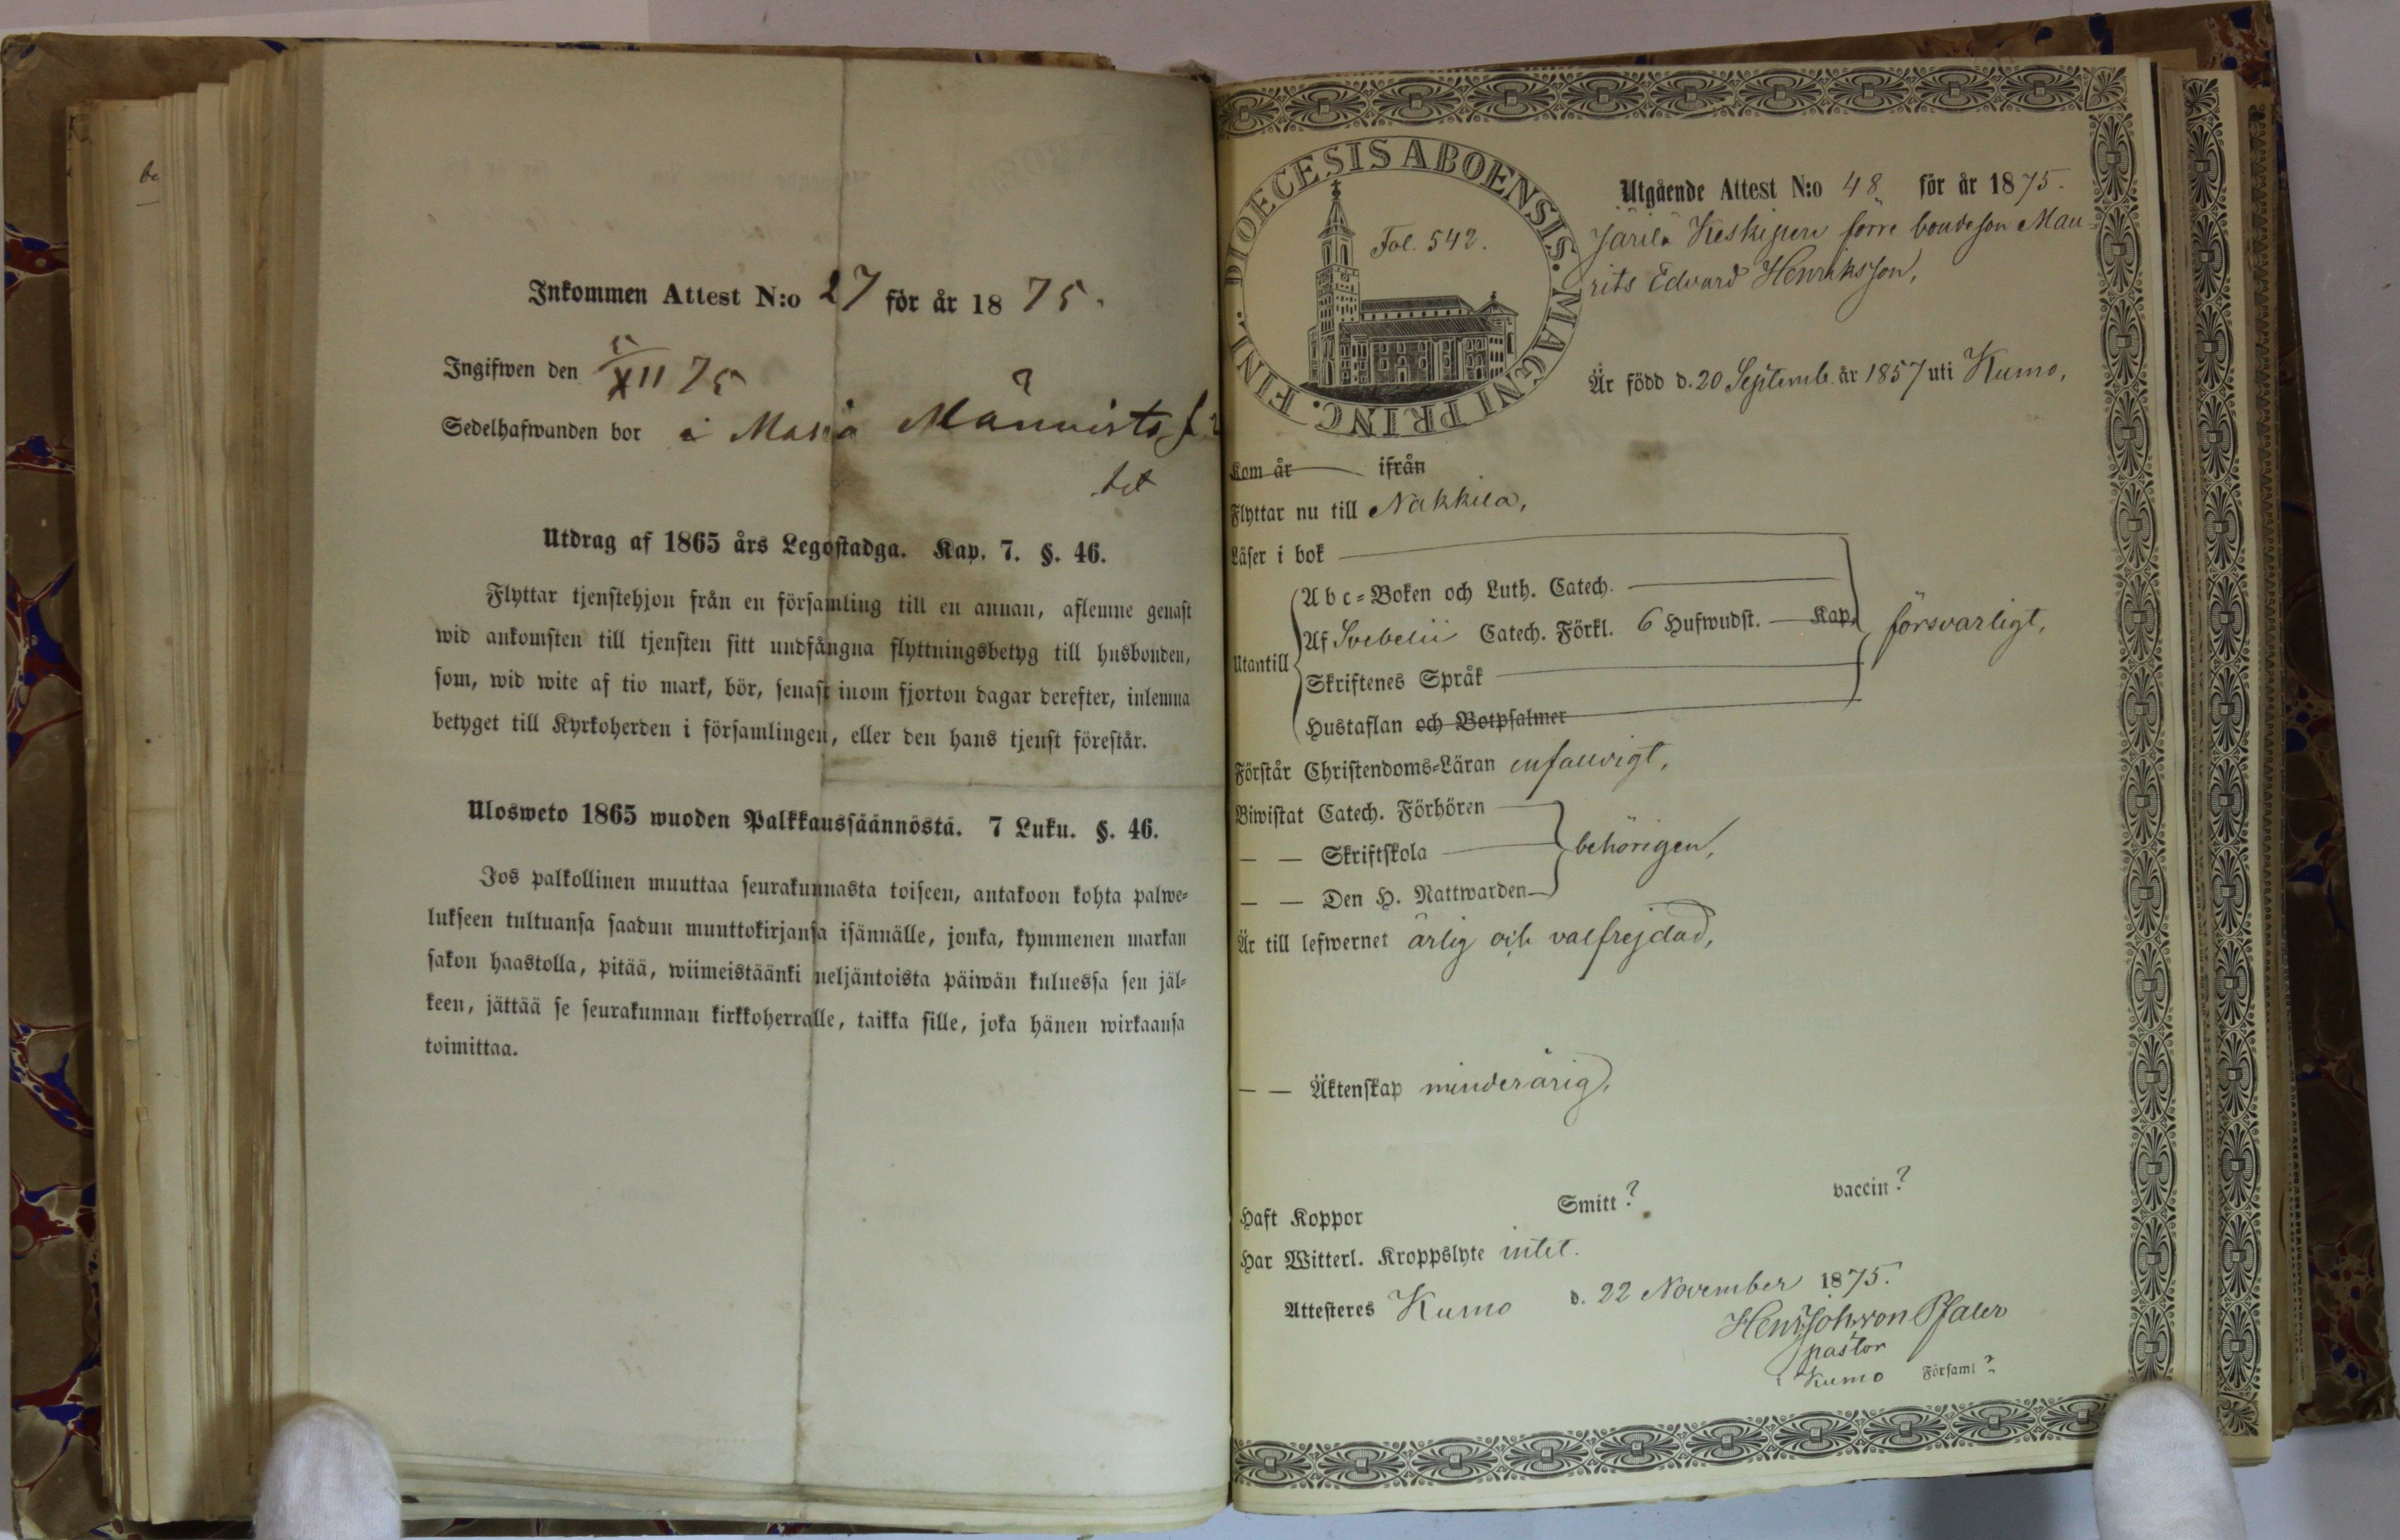 be
Inkommen Attest N:o 27 för år 1875.
Ingifwen den XII 75
Sedelhafwanden bor i Masia Männisto
Utdrag af 1865 års Legostadga. Kap. 7. §. 46.
Flyttar tjenstehjon från en församling till en annan, aflemne genast
wid ankomsten till tjensten sitt undfångna flyttningsbetyg till husbonden,
som, wid wite af tio mark, bör, senast inom fjorton dagar derefter, inlemna
betyget till Kyrkoherden i församlingen, eller den hans tjenst förestår.
Ulosweto 1865 wuoden Palkkaussäännöstä. 7 Luku. §. 46.
Jos palkollinen muuttaa seurakunnasta toiseen, antakoon kohta palwe-
lukseen tultuansa saadun muuttokirjansa isännälle, jonka, kymmenen markan
sakon haastolla, pitää, wiimeistäänki neljäntoista päiwän kuluessa sen jäl-
keen, jättää se seurakunnan kirkkoherralle, taikka sille, joka hänen wirkaansa
toimittaa.
DIOECESIS ABOENSIS. MAGNI PRINC. FINL.
Fol. 542.
Utgående Attest N:o 48 för år 1875.
Järilä Keskipere förre bondeson Mau-
rits Edvard Henriksson,
Är född d. 20 Septemb. år 1857 uti Kumo,
Kom år ifrån
Flyttar nu till Nakkila,
Läser i bok
Utantill
Abc-Boken och Luth. Catech.
Af Svebelii Catech. Förkl. 6 Hufwudst. Kap.
försvarligt,
Skriftenes Språk
Hustaflan och Botpsalmer
Förstår Christendoms-Läran enfaldigt,
Biwistat Catech. Förhören
— — Skriftskola
behörigen,
— — Den H. Nattwarden
Är till lefwernet ärlig och välfrejdad,
— — Äktenskap minderårig,
Haft Koppor Smitt? vaccin?
Har Witterl. Kroppslyte intet.
Attesteres Kumo d. 22 November 1875.
Henr Joh von Pfaler
pastor
i Kumo Församl?